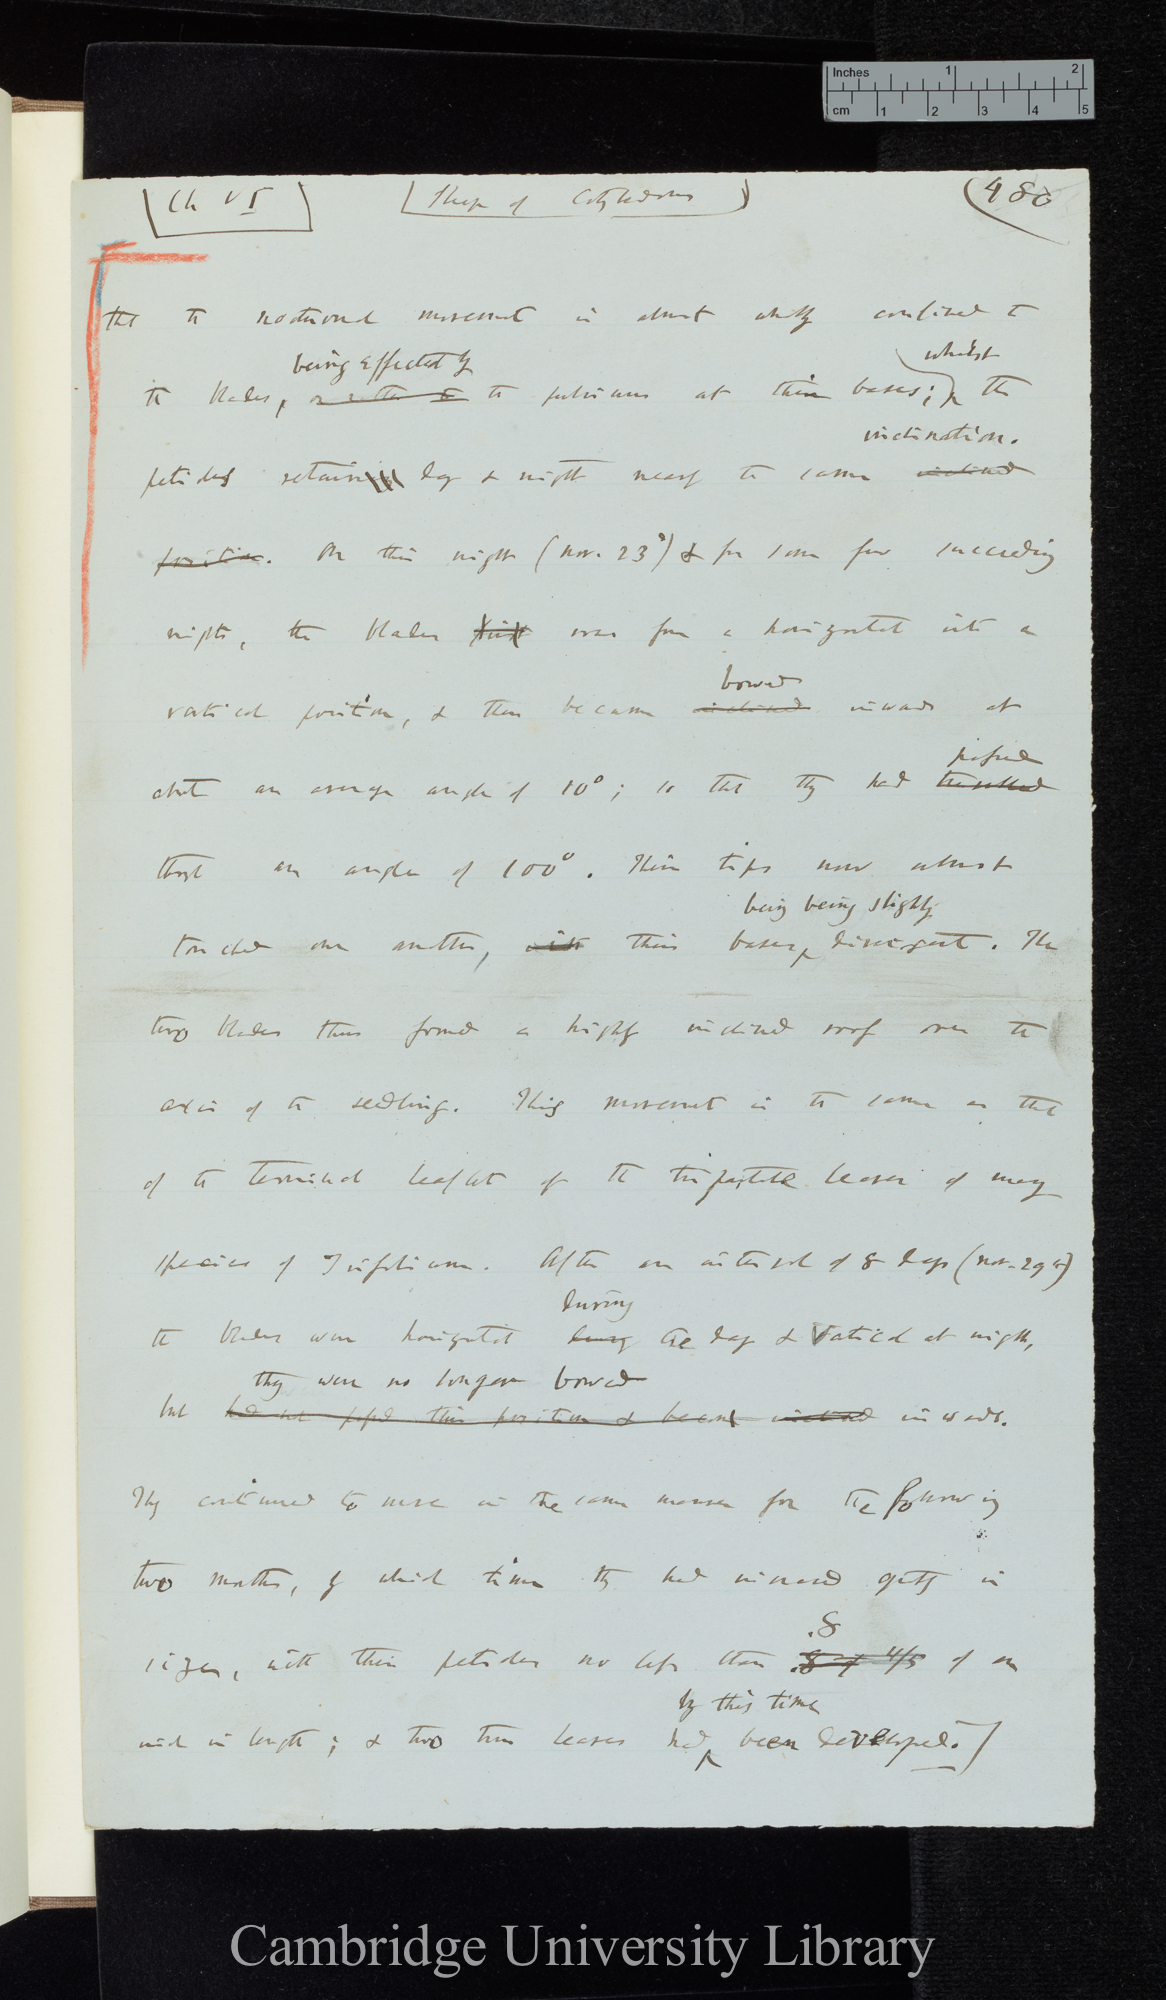 Inches 1 2
cm 1 2 3 4 5
Ch VI
Sleep of Cotyledons
(480
that the nocturnal movement is almost wholly confined to
being effected by
whilst
the blades, the pulvinus at their bases; the
inclination.
petioles retain day & night nearly the same inclined
position. On this night (Nov. 23d) & for some few succeeding
nights, the blades rose from a horizontal into a
bowed
vertical position, & then became inclined inwards at
passed
about an average angle of 10°; so that they had travelled
through an angle of 100°. Their tips now almost
being being slightly
touched one another, with their bases divergent. The
two blades thus formed a highly inclined roof over the
axis of the seedling. This movement is the same as that
of the terminal leaflet of the tripartite leaves of many
species of Trifolium. After an interval of 8 days (Nov. 29th)
during
the blades were horizontal during the day & vertical at night,
they were no longer bowed
but had not passed this position & became inclined inwards.
They continued to move in the same manner for the following
two months, by which time they had increased greatly in
.8
size, with their petioles no less than .8 of 4/5 of an
by this time
inch in length; & two true leaves had been developed.
Cambridge University Library